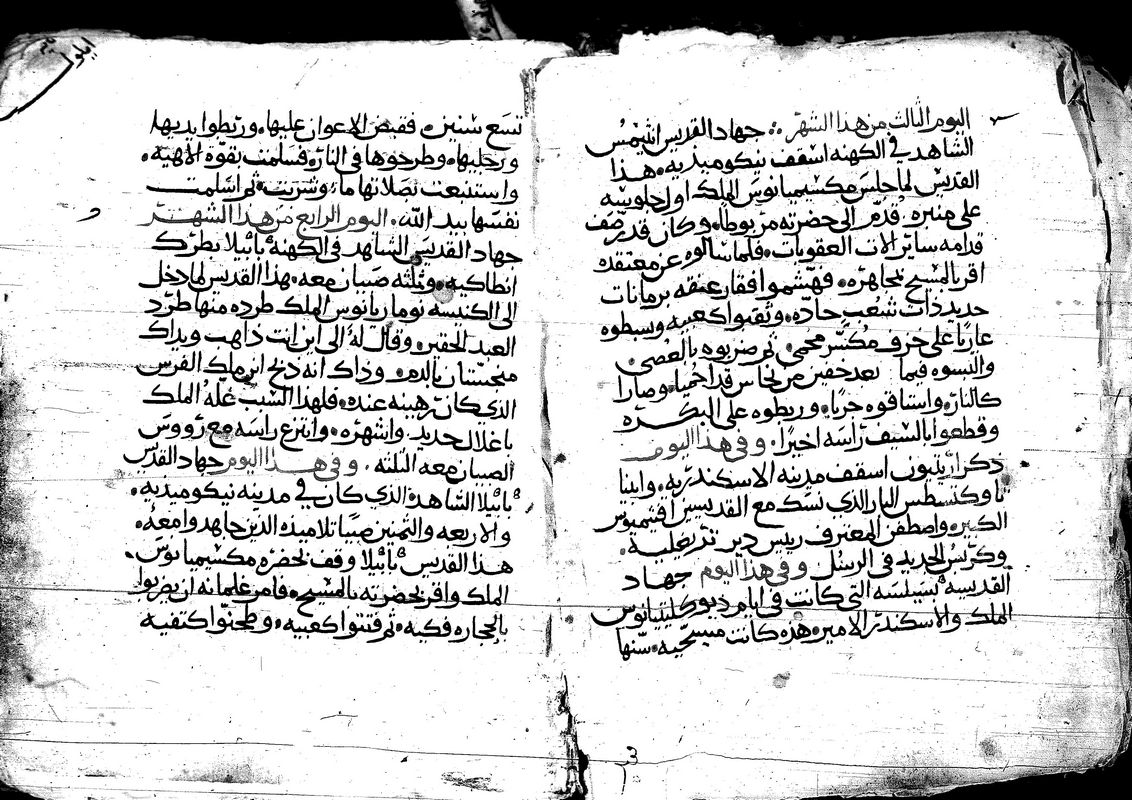 اليوم الثالث من هذا الشهر جهاد القديس انثيمس
الشاهد في الكهنه اسقف نيكوميديه، هذا
القديس لما جلس مكسيميانوس الملك اول جلوسه
على منبره، قدم الى حضرته مربوطا، وكان قد رصف
قدامه ساير الات العقوبات، فلما سالوه عن معتقده
اقر بالمسيح مجاهره، فهشموا فقار عنقه برمانات
حديد ذات شعب حاده، وثقبوا كعبيه وبسطوه
عاريا على خزف مكسر محمي، ثم ضربوه بالعصي،
والبسوه فيما بعد خفين من نحاس قد احميا، وصارا
كالنار، واستاقوه جريا، وربطوه على البكره
وقطعوا بالسيف راسه اخيرا، وفي هذا اليوم
ذكر اسقف مدينه الاسكندريه، وابينا
ثاوكتسطس البار الذي نسك مع القديس افثيميوس
الكبير، المعترف رييس دير
وكريس الجديد في الرسل وفي هذا اليوم جهاد
القديسه بسيلسه التي كانت في ايام ديوكليتيانوس
الملك والاسكندر الامير، هذه كانت مسيحيه، سنها
ايلول
تسع سنين، فقبض الاعوان عليها، وربطوا يديها
ورجليها، وطرحوها في النار، فسلمت بقوه الاهيه،
واستنبعت بصلاتها ما، وشربت، ثم اسلمت
نفسها بيد الله، اليوم الرابع من هذا الشهر
جهاد القديس الشاهد في الكهنه بابيلا بطرك
انطاكيه، وثلثه صبيان معه، هذا القديس لما دخل
الى الكنسه نوماريانوس الملك طرده منها طرد
العبد الحقير، وقال له الى اين انت ذاهب ويداك
منجستان بالدم، وذاك انه ذبح ابن ملك الفرس
الذي كان رهينه عنده، فلهذا السبب غله الملك
باغلال حديد، واشهره، وانتزع راسه مع رووس
الصبيان معه الثلثه، وفي هذا اليوم جهاد القديس
بابيلا الشاهد، الذي كان في مدينه نيكوميديه،
والاربعه والثمنين صبيا تلاميذه الذين جاهدوا معه،
هذا القديس بابيلا وقف بحضره مكسيميانوس
الملك واقر بحضرته بالمسيح، فامر غلمانه ان يضربوا
بالحجاره فكيه، ثم فتتوا كعبيه، وطحنوا كتفيه